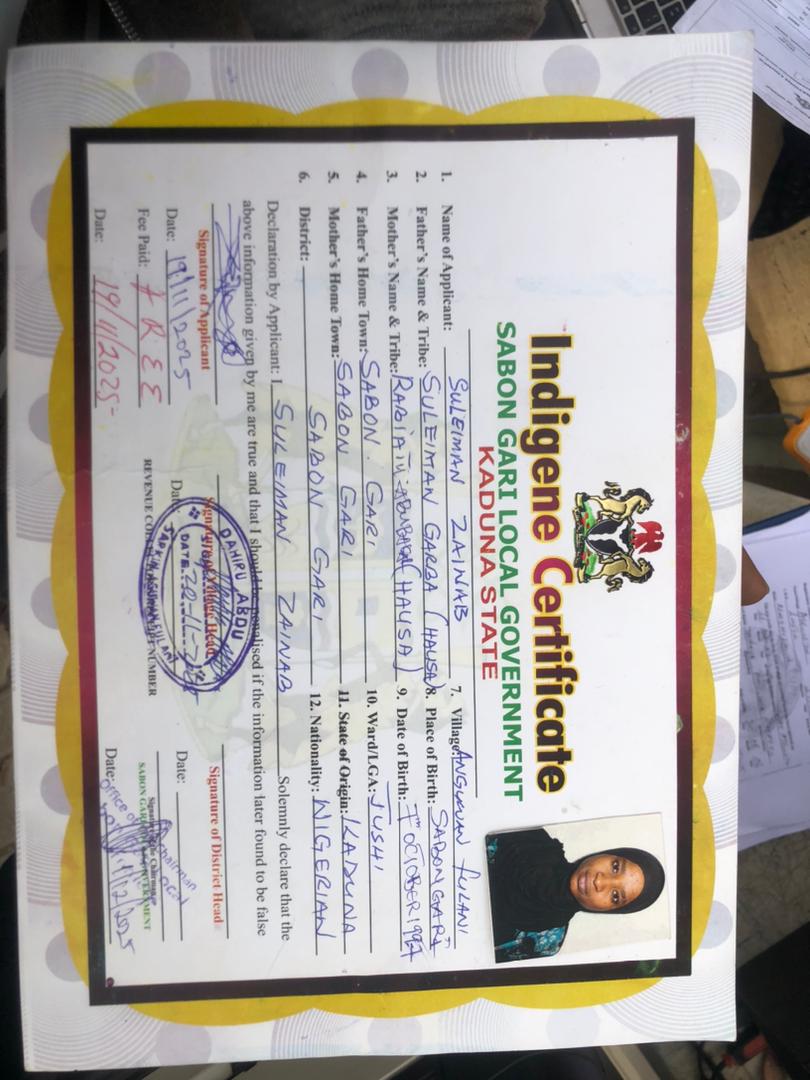 Indigene Certificate
SABON GARI LOCAL GOVERNMENT
KADUNA STATE
1. Name of Applicant: SULEIMAN ZAINAB
2. Father's Name & Tribe: SULEIMAN GARBA (HAUSA)
3. Mother's Name & Tribe: RABIATU ABUBAKAR (HAUSA)
4. Father's Home Town: SABON GARI
5. Mother's Home Town: SABON GARI
6. District: SABON GARI
7. Village: ANGUWAN FULANI
8. Place of Birth: SABON GARI
9. Date of Birth: 7TH OCTOBER 1997
10. Ward/LGA: JUSHI
11. State of Origin: KADUNA
12. Nationality: NIGERIAN
Declaration by Applicant: I, SULEIMAN ZAINAB Solemnly declare that the
above information given by me are true and that I should be penalised if the information later found to be false
Signature of Applicant
Date: 19/11/2025
Fee Paid: FREE
Date: 19/11/2025
Signature of Village Head
Date:
DAHIRU ABDU
DATE
REVENUE NUMBER
Signature of District Head
Date:
Chairman
SABON GARI GOVERNMENT
Office of Chairman
Date: 12/2025